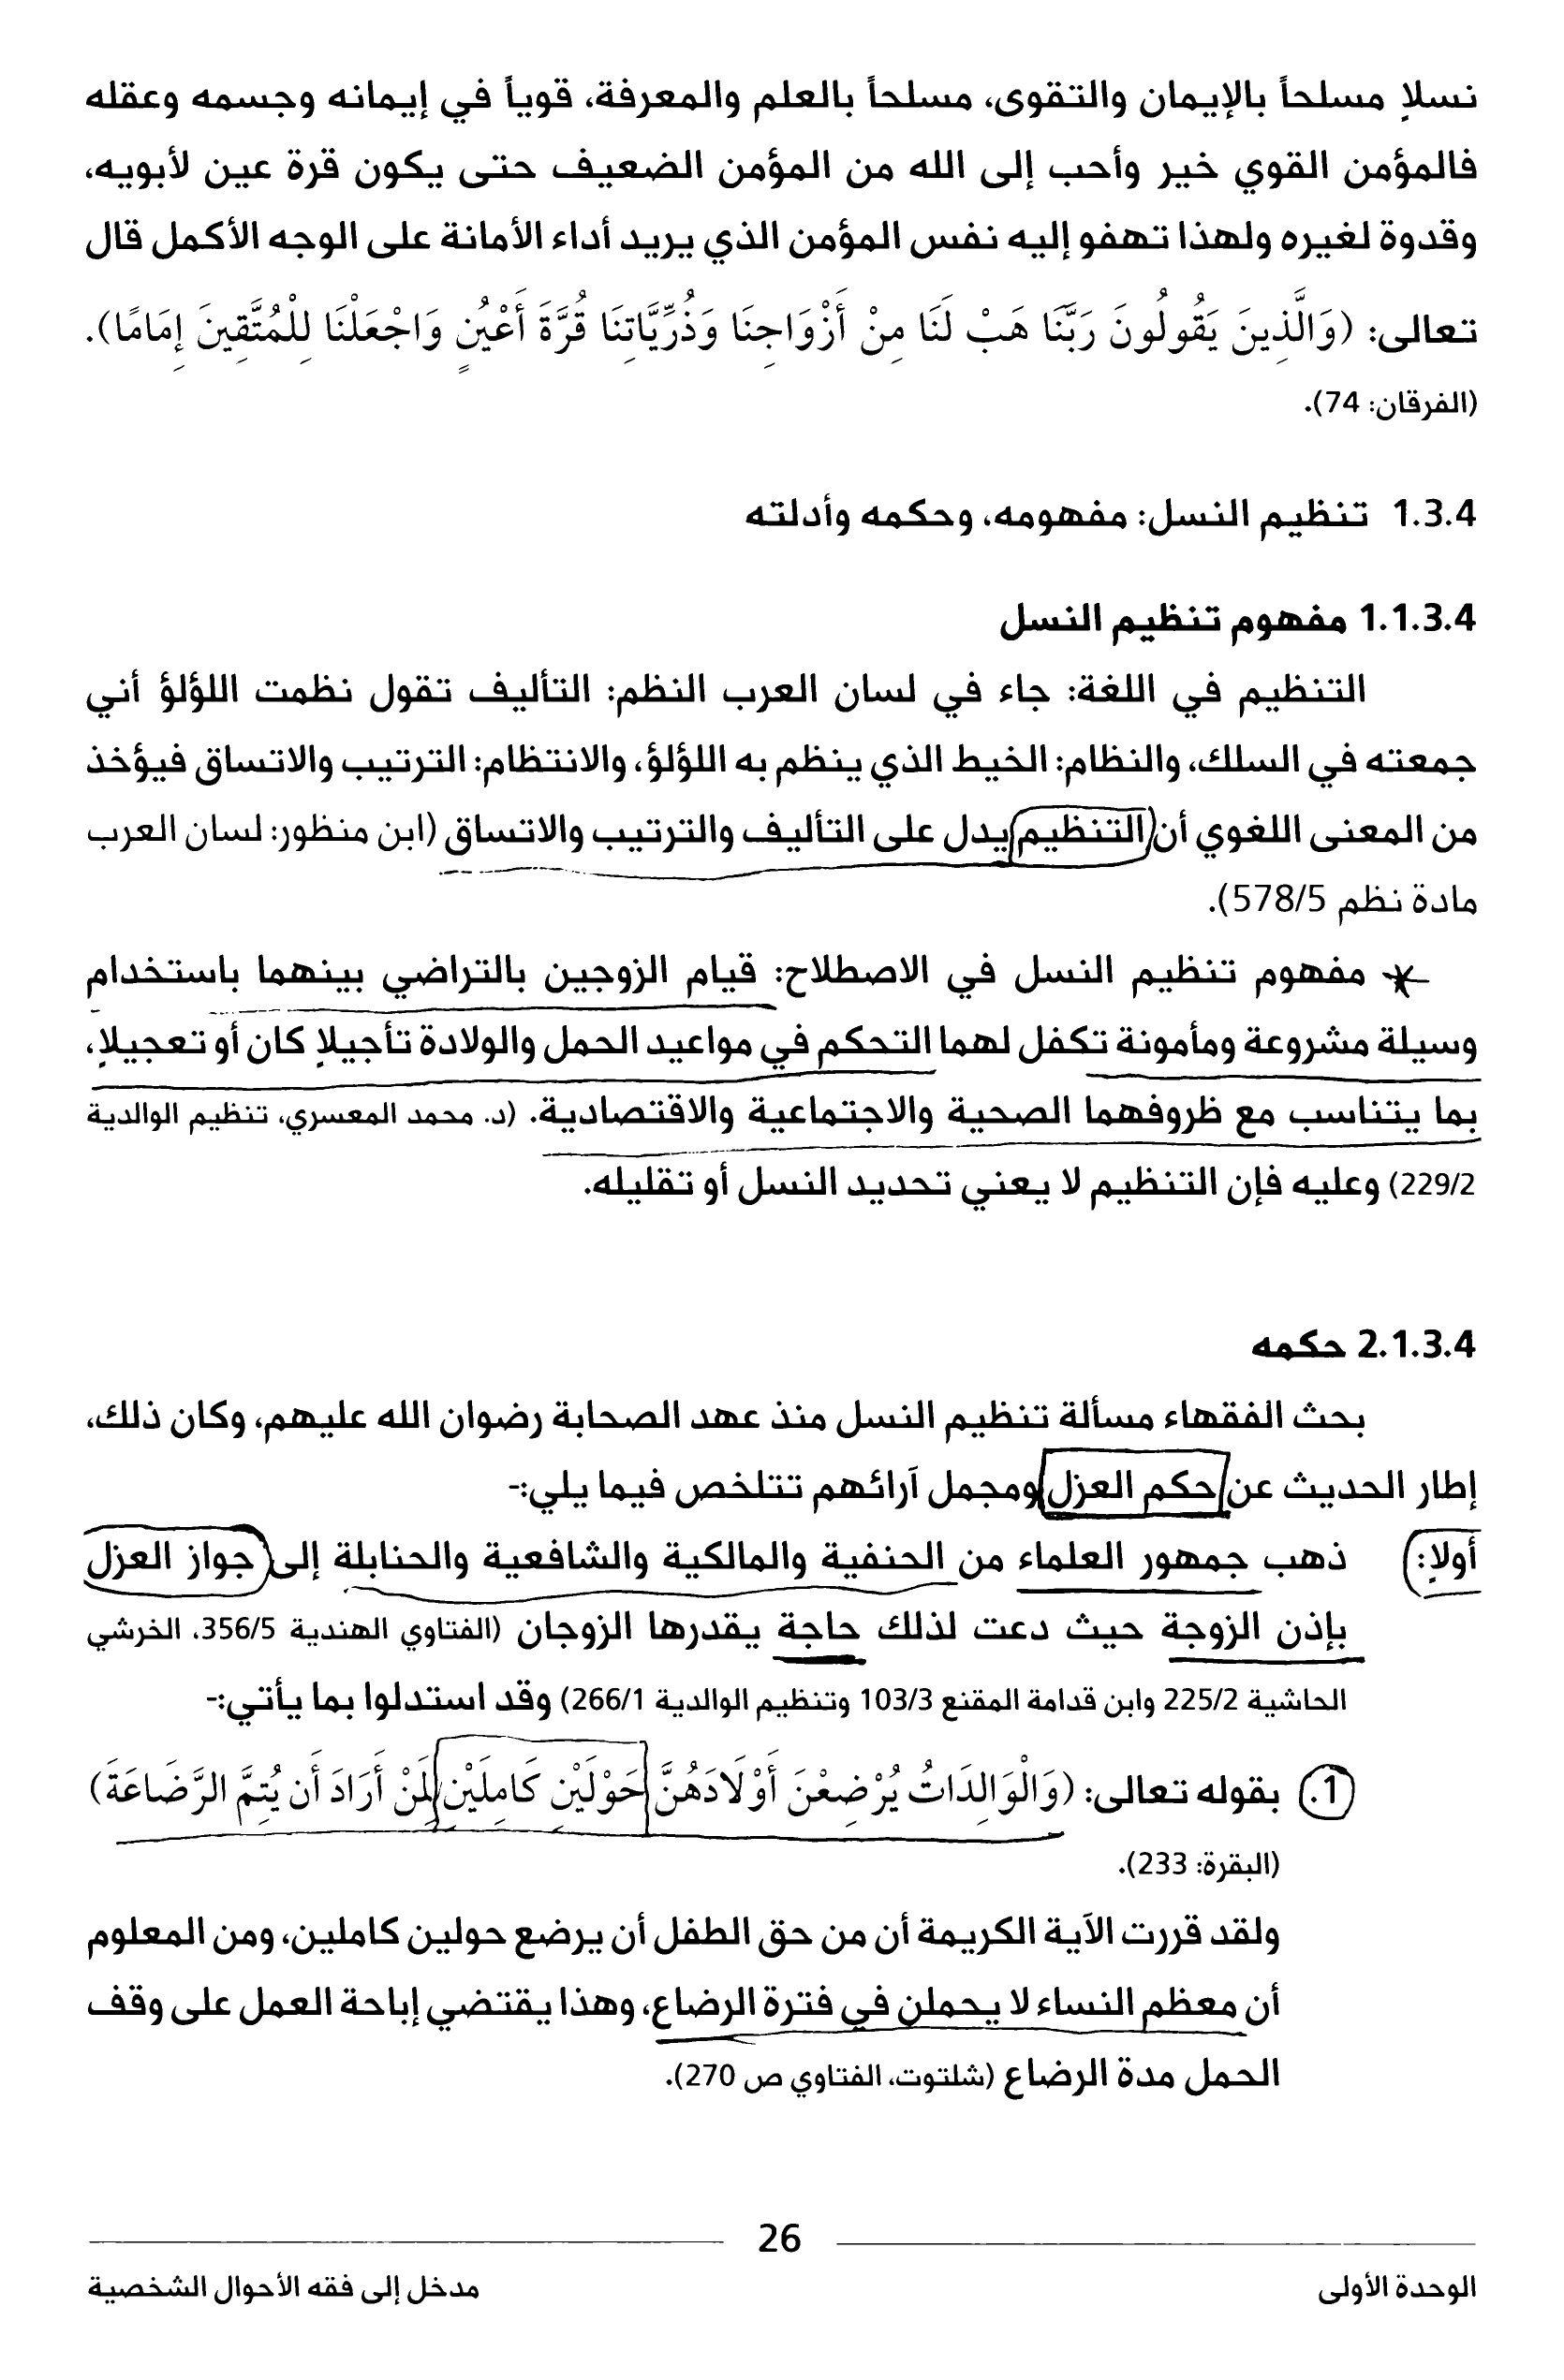 نسلاً مسلحاً بالإيمان والتقوى، مسلحاً بالعلم والمعرفة، قوياً في إيمانه وجسمه وعقله
فالمؤمن القوي خير وأحب إلى الله من المؤمن الضعيف حتى يكون قرة عين لأبويه،
وقدوة لغيره ولهذا تهفو إليه نفس المؤمن الذي يريد أداء الأمانة على الوجه الأكمل قال
تعالى: (وَالَّذِينَ يَقُولُونَ رَبَّنَا هَبْ لَنَا مِنْ أَزْوَاجِنَا وَذُرِّيَّاتِنَا قُرَّةَ أَعْيُنٍ وَاجْعَلْنَا لِلْمُتَّقِينَ إِمَامًا).
(الفرقان: 74).
1.3.4 تنظيم النسل: مفهومه، وحكمه وأدلته
1.1.3.4 مفهوم تنظيم النسل
التنظيم في اللغة: جاء في لسان العرب النظم: التأليف تقول نظمت اللؤلؤ أني
جمعته في السلك، والنظام: الخيط الذي ينظم به اللؤلؤ، والانتظام: الترتيب والاتساق فيؤخذ
من المعنى اللغوي أن التنظيم يدل على التأليف والترتيب والاتساق (ابن منظور: لسان العرب
مادة نظم 578/5).
* مفهوم تنظيم النسل في الاصطلاح: قيام الزوجين بالتراضي بينهما باستخدام
وسيلة مشروعة ومأمونة تكفل لهما التحكم في مواعيد الحمل والولادة تأجيلاً كان أو تعجيلاً،
بما يتناسب مع ظروفهما الصحية والاجتماعية والاقتصادية. (د. محمد المعسري، تنظيم الوالدية
229/2) وعليه فإن التنظيم لا يعني تحديد النسل أو تقليله.
2.1.3.4 حكمه
بحث الفقهاء مسألة تنظيم النسل منذ عهد الصحابة رضوان الله عليهم، وكان ذلك،
إطار الحديث عن حكم العزل ومجمل آرائهم تتلخص فيما يلي:-
أولاً: ذهب جمهور العلماء من الحنفية والمالكية والشافعية والحنابلة إلى جواز العزل
بإذن الزوجة حيث دعت لذلك حاجة يقدرها الزوجان (الفتاوي الهندية 356/5، الخرشي
الحاشية 225/2 وابن قدامة المقنع 103/3 وتنظيم الوالدية 266/1) وقد استدلوا بما يأتي:-
1. بقوله تعالى: (وَالْوَالِدَاتُ يُرْضِعْنَ أَوْلَادَهُنَّ حَوْلَيْنِ كَامِلَيْنِ لِمَنْ أَرَادَ أَن يُتِمَّ الرَّضَاعَةَ)
(البقرة: 233).
ولقد قررت الآية الكريمة أن من حق الطفل أن يرضع حولين كاملين، ومن المعلوم
أن معظم النساء لا يحملن في فترة الرضاع، وهذا يقتضي إباحة العمل على وقف
الحمل مدة الرضاع (شلتوت، الفتاوي ص 270).
26
الوحدة الأولى
مدخل إلى فقه الأحوال الشخصية